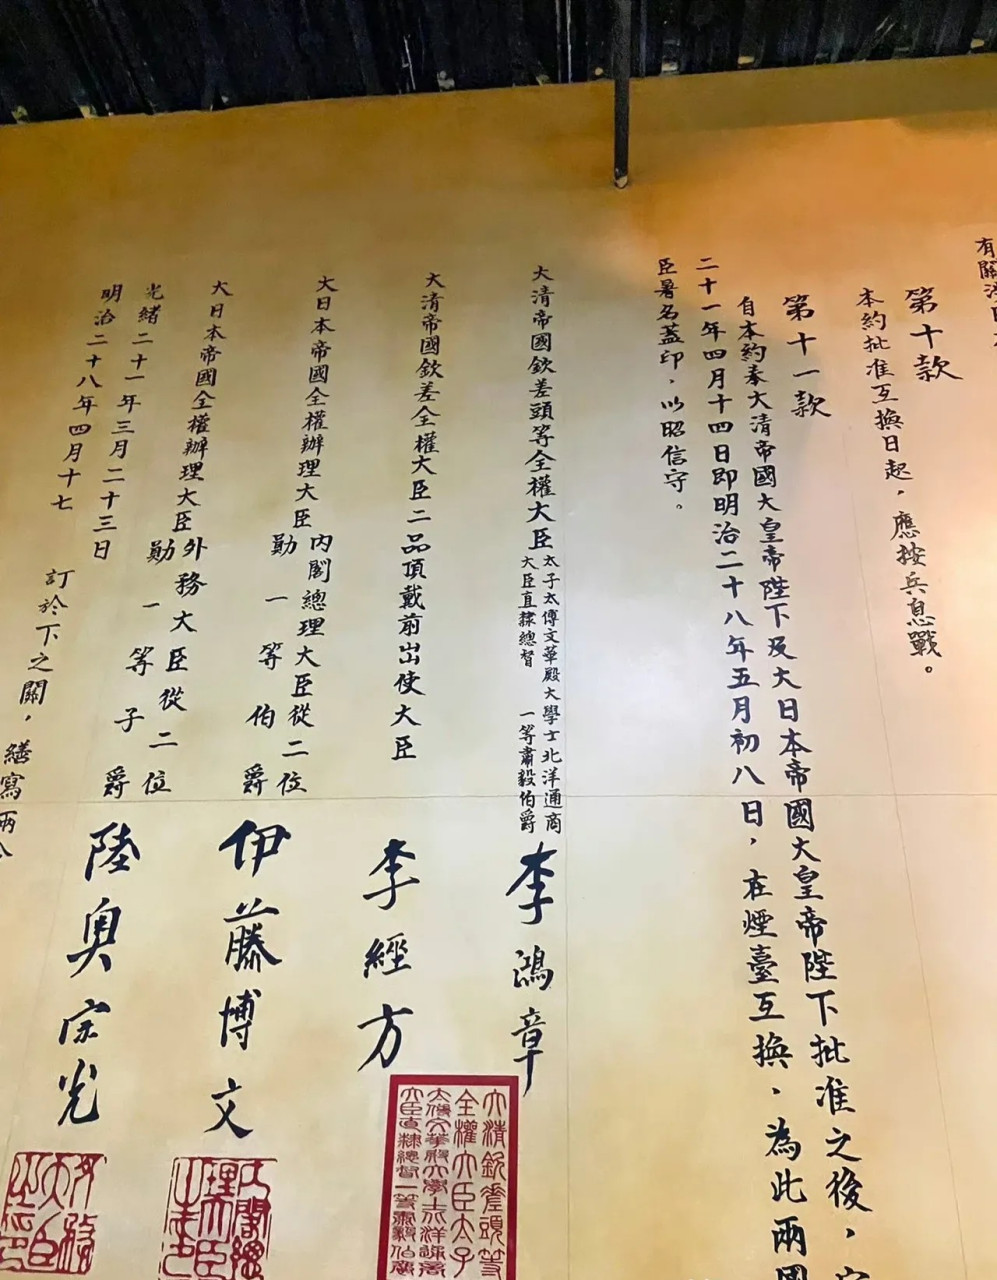 有關
第十款
本約批准互換日起，應按兵息戰。
第十一款
自本約奉大清帝國大皇帝陛下及大日本帝國大皇帝陛下批准之後，定
二十一年四月十四日即明治二十八年五月初八日，在煙臺互換，為此兩國
臣署名蓋印，以昭信守。
大清帝國欽差頭等全權大臣
太子太傅文華殿大學士北洋通商
大臣直隸總督 一等肅毅伯爵
李鴻章
大清帝國欽差全權大臣二品頂戴前出使大臣
李經方
大日本帝國全權辦理大臣
內閣總理大臣從二位
勛一等伯爵
伊藤博文
大日本帝國全權辦理大臣
外務大臣從二位
勛一等子爵
陸奧宗光
光緒二十一年三月二十三日
明治二十八年四月十七
訂於下之關，繕寫兩
大清欽差頭等
全權大臣太子
太傅文華殿大學士北洋通商
大臣直隸總督一等肅毅伯爵
內閣總
理大臣
外務
大臣
之印